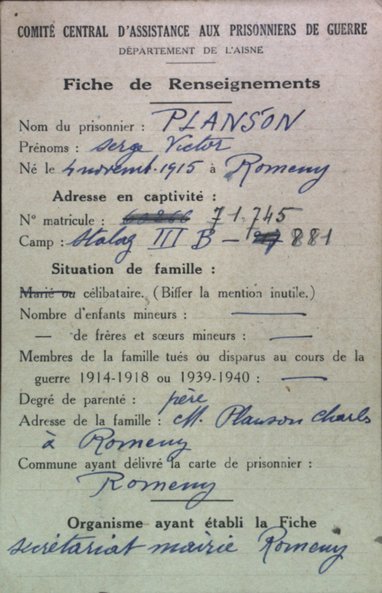 COMITÉ CENTRAL D'ASSISTANCE AUX PRISONNIERS DE GUERRE
DÉPARTEMENT DE L'AISNE
Fiche de Renseignements
Nom du prisonnier : PLANSON
Prénoms : Serge Victor
Né le 4 novemb. 1915 à Romeny
Adresse en captivité :
N° matricule : 71.745
Camp : Stalag III B - 881
Situation de famille :
Marié ou célibataire. (Biffer la mention inutile.)
Nombre d'enfants mineurs : —
— de frères et sœurs mineurs : —
Membres de la famille tués ou disparus au cours de la
guerre 1914-1918 ou 1939-1940 : —
Degré de parenté : père
Adresse de la famille : M. Planson Charles
à Romeny
Commune ayant délivré la carte de prisonnier :
Romeny
Organisme ayant établi la Fiche
secrétariat mairie Romeny